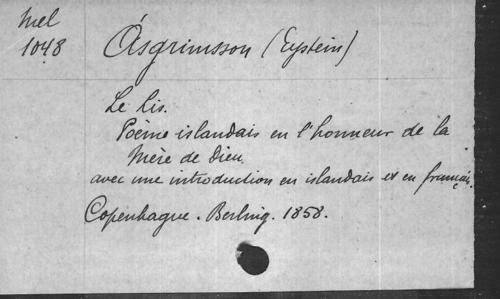 Mel
1048
Ásgrimsson (Eystein)
Le Lis.
Poème islandais en l'honneur de la
Mère de Dieu
avec une introduction en islandais et en français.
Copenhague. Berling. 1858.